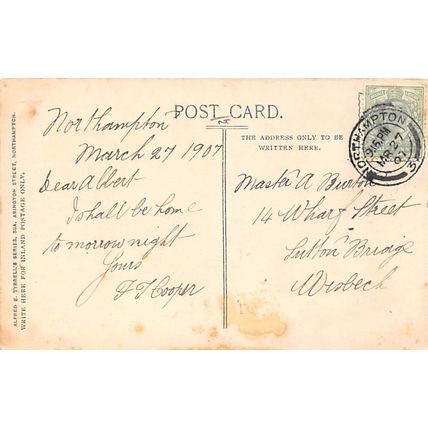 ALFRED E. TYRRELL'S SERIES, 38A, ABINGTON STREET, NORTHAMPTON.
WRITE HERE FOR INLAND POSTAGE ONLY.
POST CARD.
THE ADDRESS ONLY TO BE
WRITTEN HERE.
NORTHAMPTON
MR 27
07
Northampton
March 27 1907
Dear Albert
I shall be home
to morrow night
Yours
F Cooper
Master A Burton
14 Wharf Street
Sutton Bridge
Wisbech